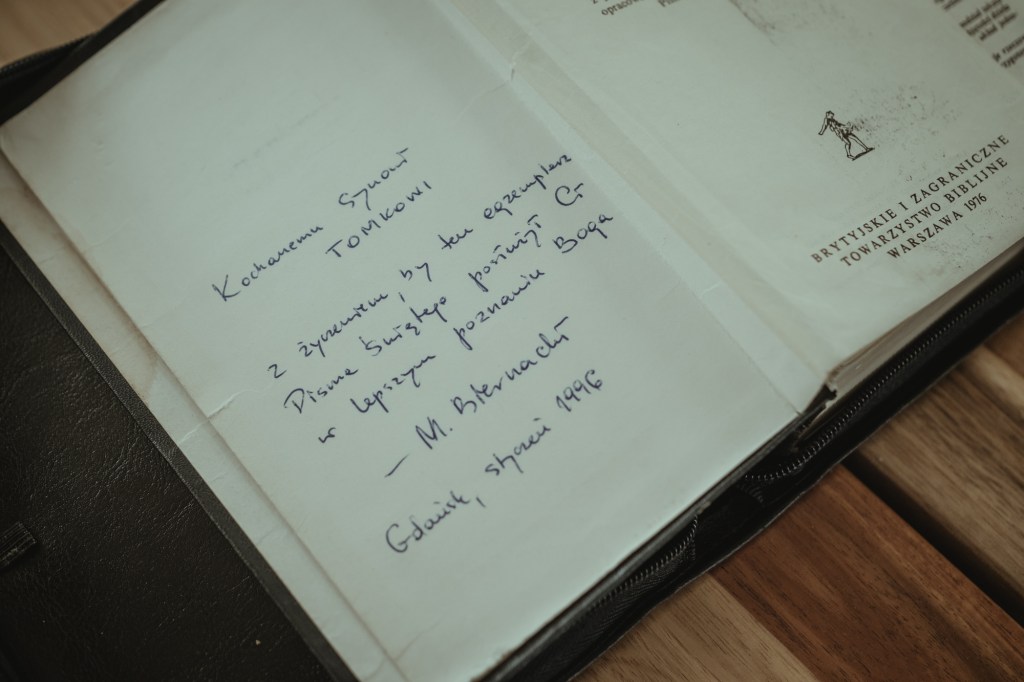 Kochanemu Synowi
TOMKOWI
z życzeniem, by ten egzemplarz
Pisma Świętego posłużył Ci
w lepszym poznaniu Boga
— M. Biernacki
Gdańsk, styczeń 1996
opraco
BRYTYJSKIE I ZAGRANICZNE
TOWARZYSTWO BIBLIJNE
WARSZAWA 1976